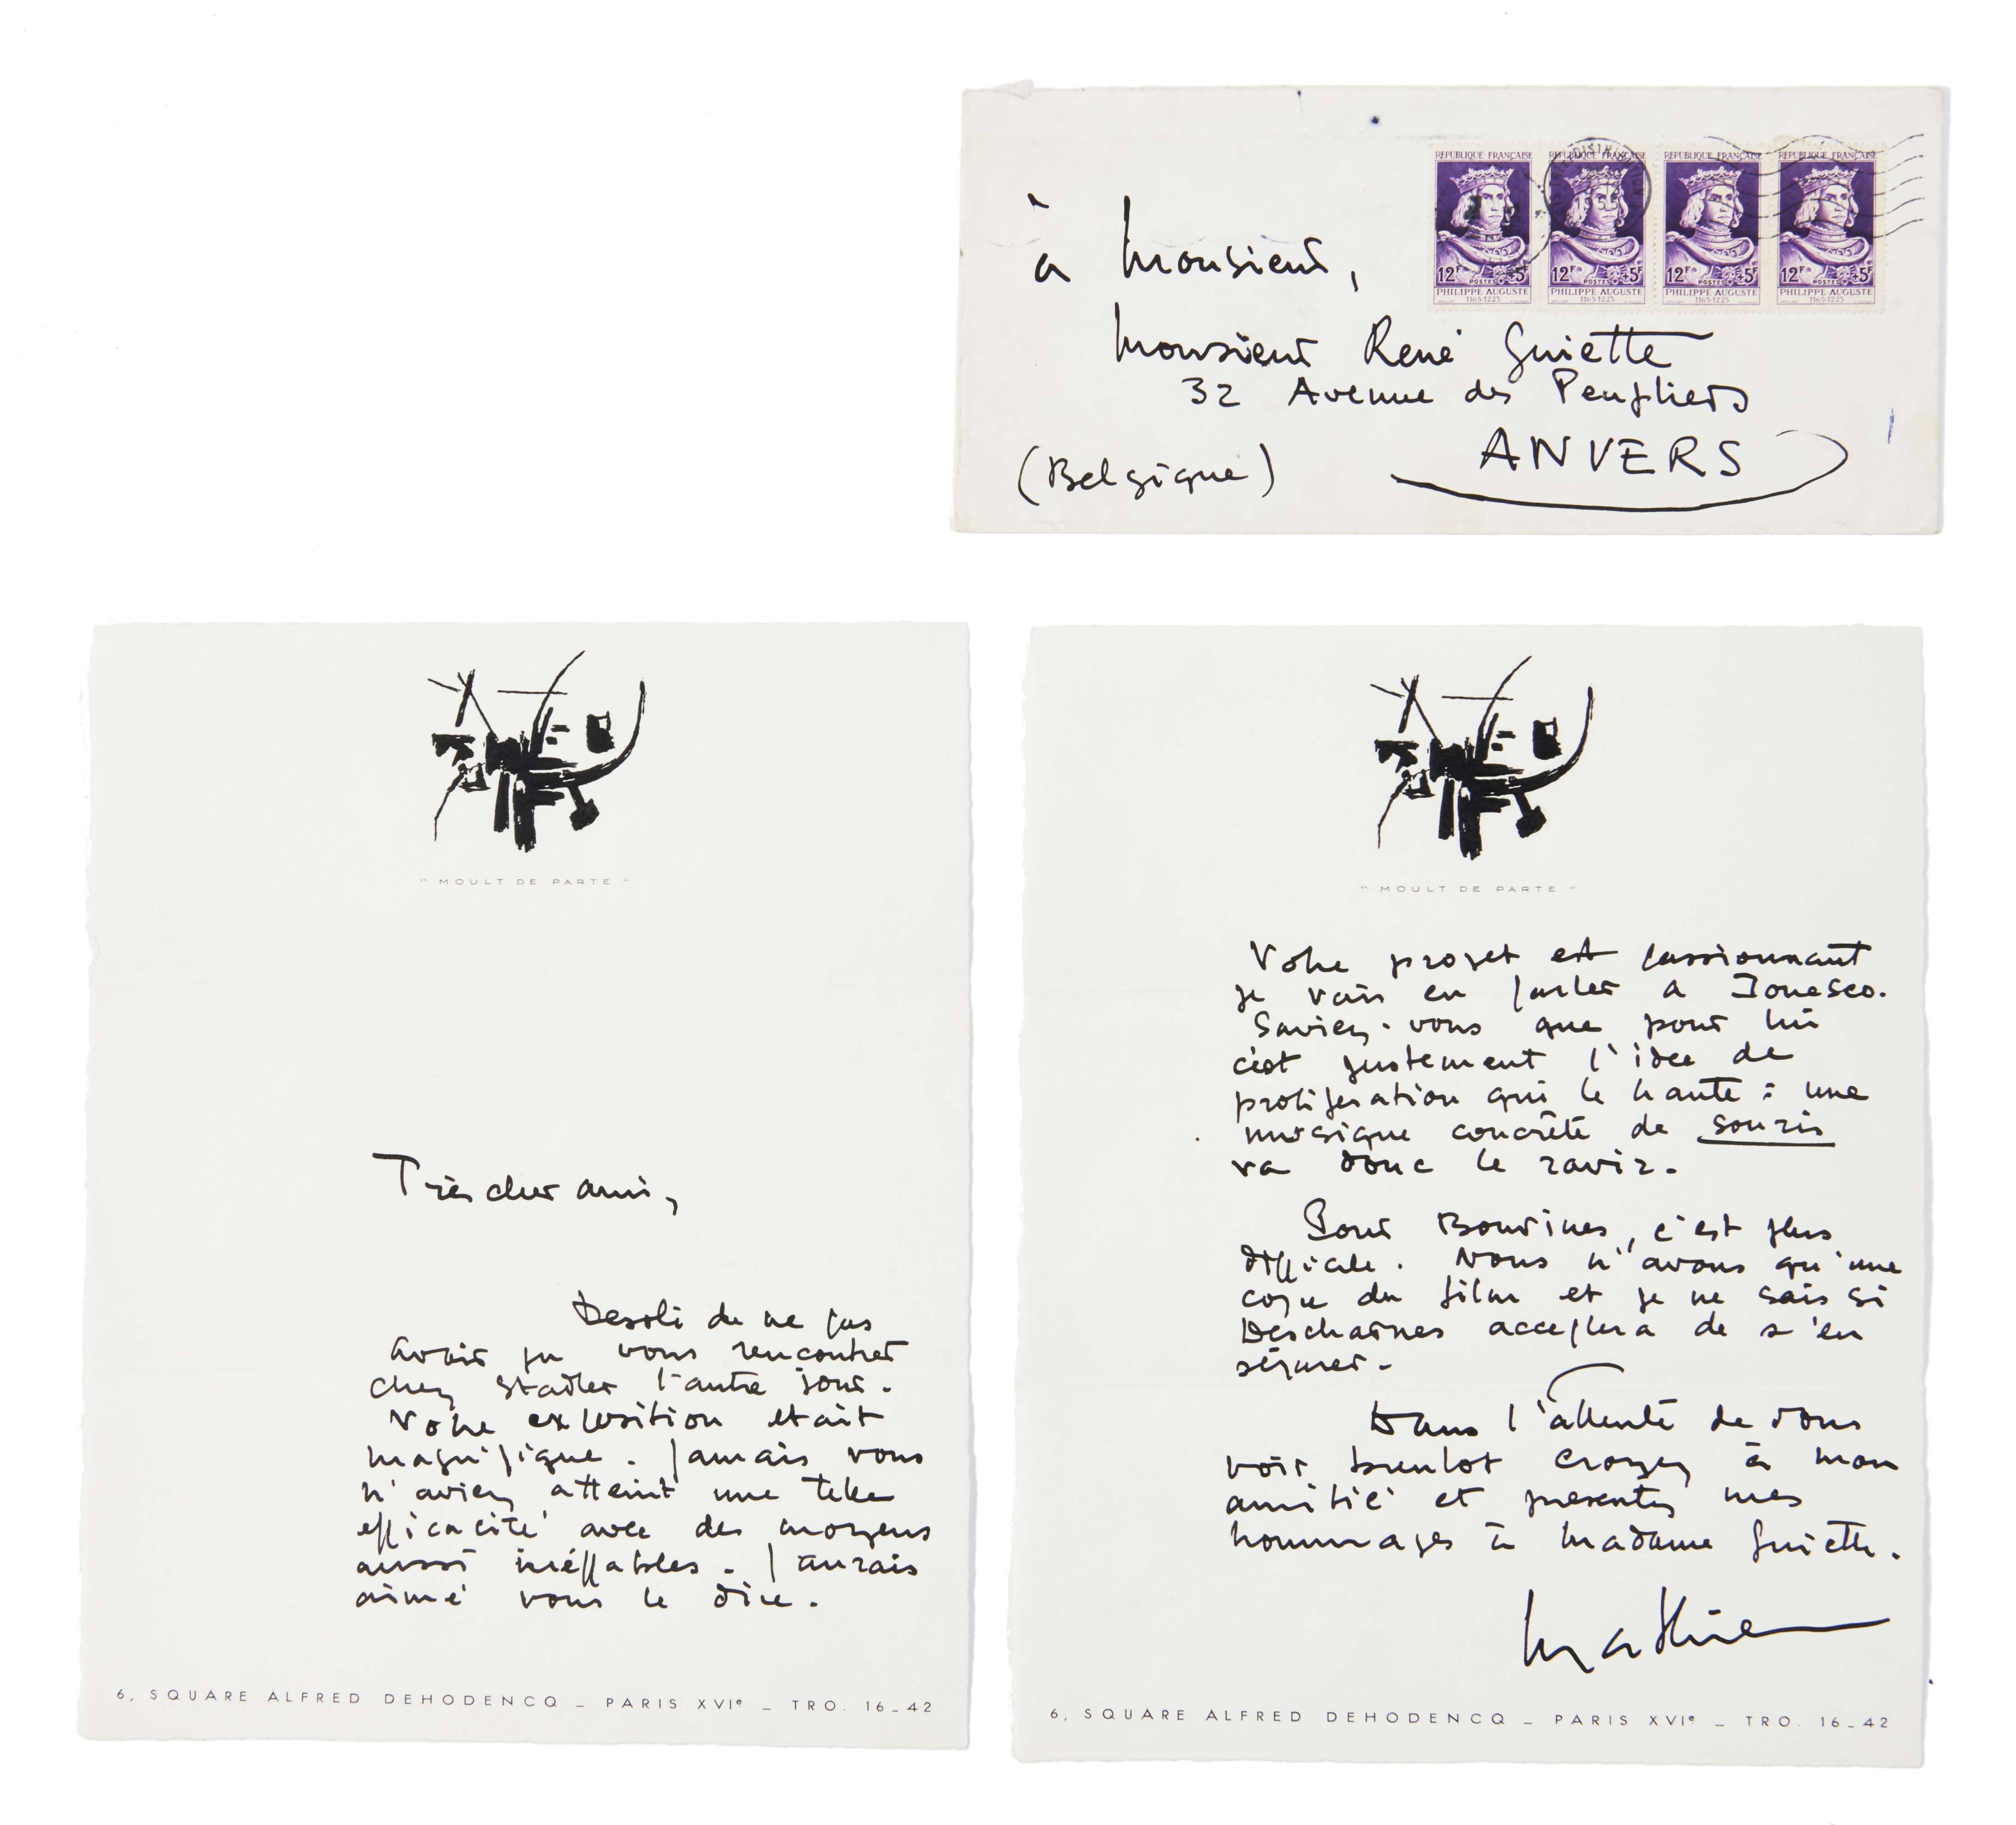 à Monsieur,
Monsieur René Guiette
32 Avenue des Peupliers
ANVERS
(Belgique)
REPUBLIQUE FRANÇAISE
12F POSTES +5F
PHILIPPE AUGUSTE
1165-1223
REPUBLIQUE FRANÇAISE
12F POSTES +5F
PHILIPPE AUGUSTE
1165-1223
REPUBLIQUE FRANÇAISE
12F POSTES +5F
PHILIPPE AUGUSTE
1165-1223
REPUBLIQUE FRANÇAISE
12F POSTES +5F
PHILIPPE AUGUSTE
1165-1223
" MOULT DE PARTE "
Très cher ami,
Desolé de ne pas
avoir pu vous rencontrer
chez Stadler l'autre jour.
Votre exposition etait
magnifique. Jamais vous
n'aviez atteint une telle
efficacité avec des moyens
aussi inéffables. J'aurais
aimé vous le dire.
6, SQUARE ALFRED DEHODENCQ _ PARIS XVIe _ TRO. 16_42
" MOULT DE PARTE "
Votre projet est passionnant
je vais en parler a Ionesco.
Saviez-vous que pour lui
c'est justement l'idee de
proliferation qui le hante : une
musique concrète de souris
va donc le ravir.
Pour Bouvines, c'est plus
difficile. Nous n'avons qu'une
copie du film et je ne sais si
Descharnes acceptera de s'en
séparer.
Dans l'attente de vous
voir bientot croyez à mon
amitié et presentez mes
hommages à Madame Guiette.
Mathieu
6, SQUARE ALFRED DEHODENCQ _ PARIS XVIe _ TRO. 16_42